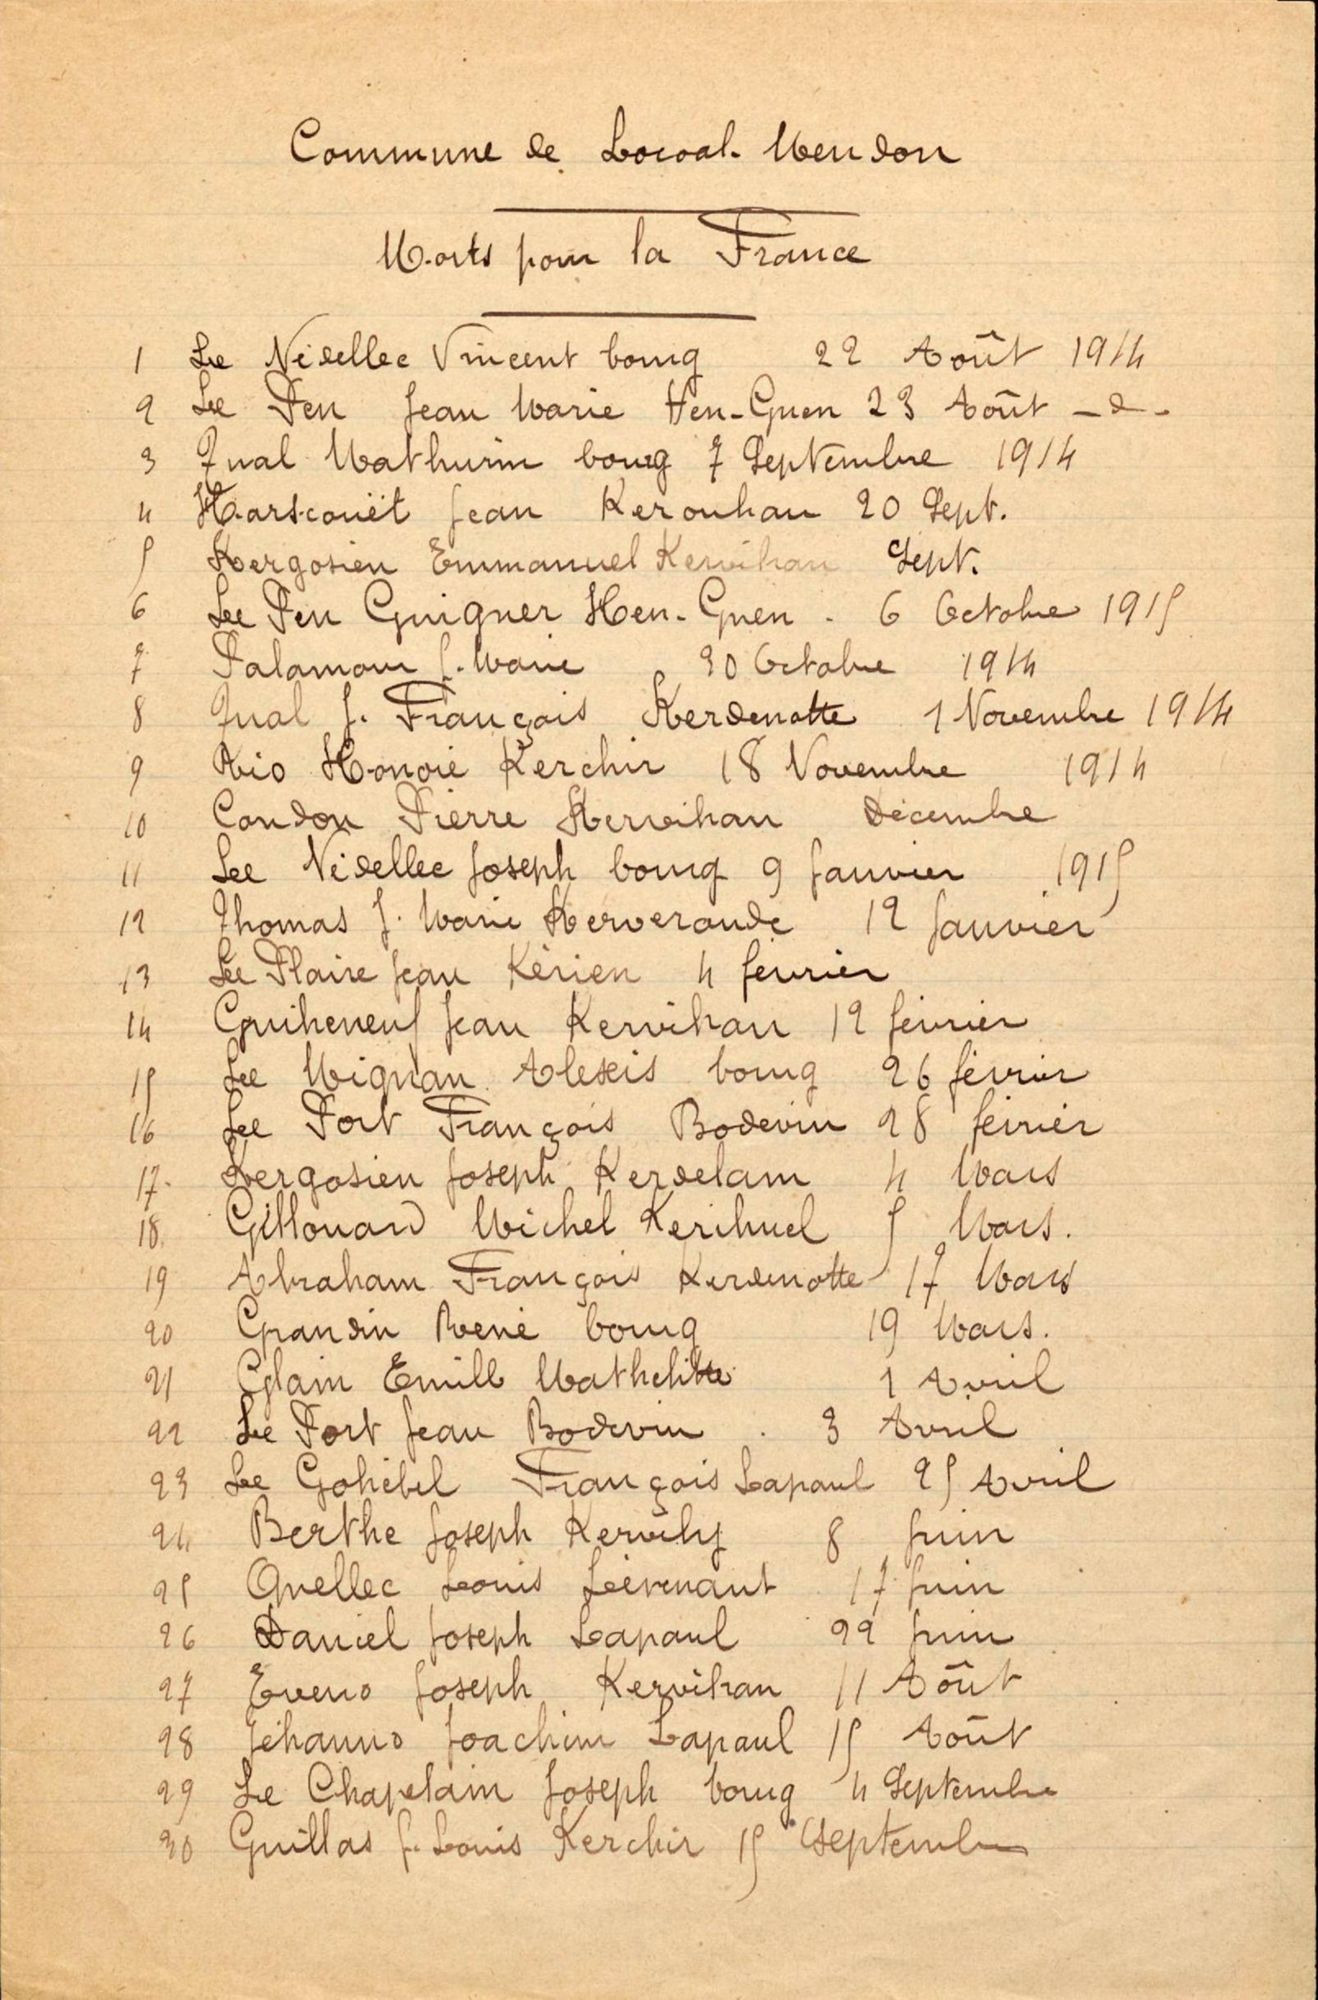 Commune de Locoal-Mendon
Morts pour la France
1 Le Nédellec Vincent bourg 22 Août 1914
2 Le Peu Jean Marie Hen-Guen 23 Août -d-
3 Jual Mathurin bourg 7 Septembre 1914
4 Harscouët Jean Kerouhan 20 Sept.
5 Kergosien Emmanuel Kervihan Sept.
6 Le Peu Guigner Hen-Guen. 6 Octobre 1915
7 Palamour J. Marie 30 Octobre 1914
8 Jual J. François Kerdenotte 1 Novembre 1914
9 Rio Honoré Kerchir 18 Novembre 1914
10 Condon Pierre Kervihan Décembre
11 Le Nédellec Joseph bourg 9 Janvier 1915
12 Thomas J. Marie Kerverande 12 Janvier
13 Le Plaire Jean Kérien 4 février
14 Guiheneuf Jean Kervihan 12 février
15 Le Mignan Alexis bourg 26 février
16 Le Port François Bodevin 28 février
17. Kergosien Joseph Kerdelam 4 Mars
18. Gillouard Michel Kerihuel 5 Mars.
19 Abraham François Kerdenotte 17 Mars
20 Grandin René bourg 19 Mars.
21 Glain Emile 1 Avril
22 Le Port Jean Bodevin. 3 Avril
23 Le Gohébel François Lapaul 25 Avril
24 Berthe Joseph Kervily 8 Juin
25 Quellec Louis Liévenant 17 Juin
26 Daniel Joseph Lapaul 22 Juin
27 Eveno Joseph Kervihan 11 Août
28 Jéhanno Joachim Lapaul 15 Août
29 Le Chapelain Joseph bourg 4 Septembre
30 Guillas J. Louis Kerchir 15 Septembre